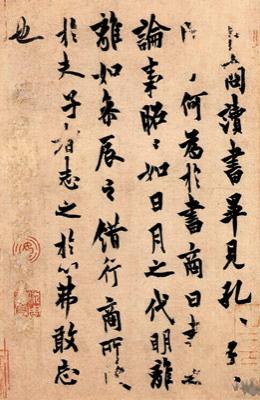 問讀書畢見孔〻子〻
何為於書商曰書之
論事昭〻如日月之代明離
離如參辰之錯行商所受
於夫子者志之於心弗敢忘
也